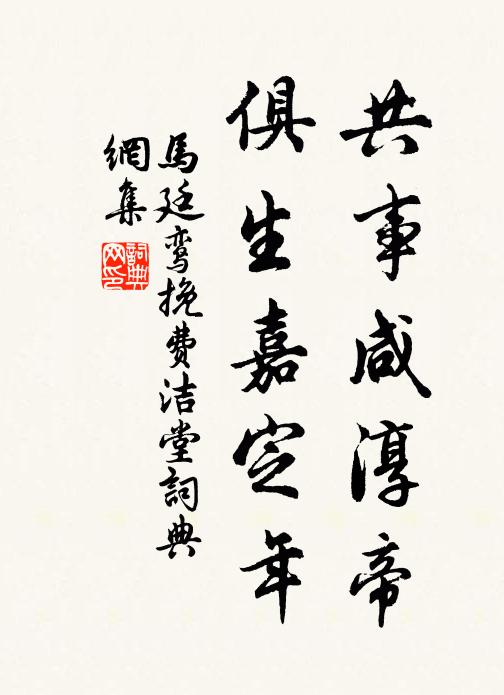 共事咸淳帝
俱生嘉定年
馬廷鸾挽費洁堂詞典
網集
詞典
网印